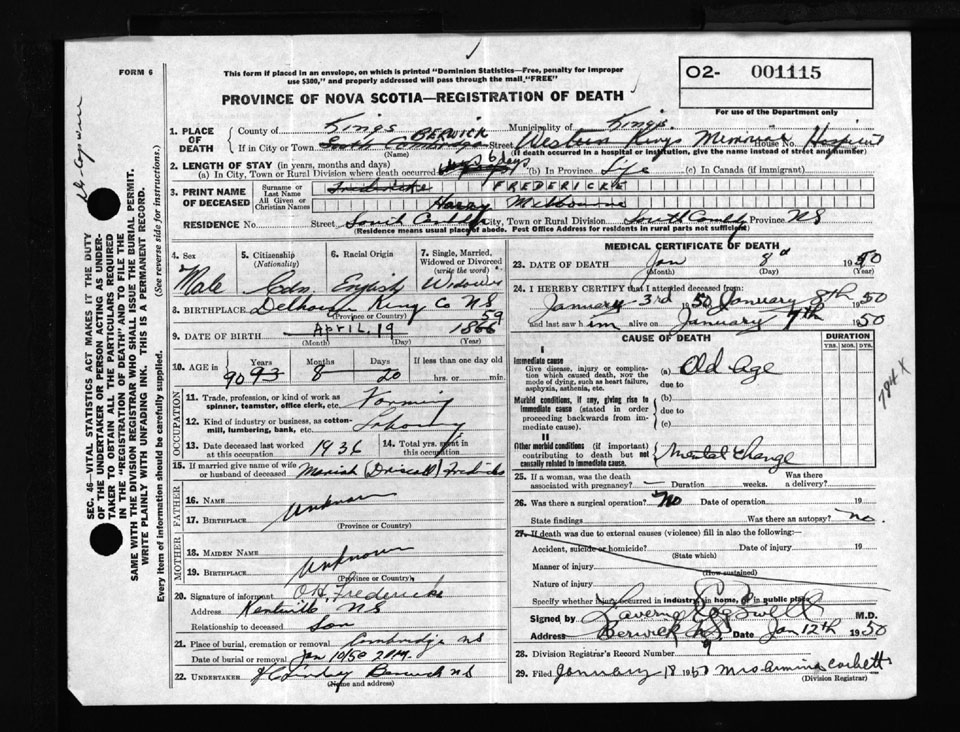 FORM 6
This form if placed in an envelope, on which is printed "Dominion Statistics—Free, penalty for improper
use $300," and properly addressed will pass through the mail "FREE"
O2- 001115
PROVINCE OF NOVA SCOTIA—REGISTRATION OF DEATH
For use of the Department only
1. PLACE OF DEATH
County of Kings Municipality of Kings
If in City or Town BERWICK Street Western Kings Memorial House No. Hospital
(Name) (If death occurred in a hospital or institution, give the name instead of street and number)
2. LENGTH OF STAY (in years, months and days)
(a) In City, Town or Rural Division where death occurred 6 days (b) In Province Life (c) In Canada (if immigrant)
3. PRINT NAME OF DECEASED
Surname or Last Name Fredericks FREDERICKS
All Given or Christian Names Harry Melbourne
RESIDENCE No. Street South Cambridge City, Town or Rural Division South Cambridge Province NS
(Residence means usual place of abode. Post Office Address for residents in rural parts not sufficient)
4. Sex Male
5. Citizenship (Nationality) Cdn
6. Racial Origin English
7. Single, Married, Widowed or Divorced (write the word) Widower
8. BIRTHPLACE Delhaven King Co NS
(Province or Country)
9. DATE OF BIRTH APRIL 19 1866 59
(Month) (Day) (Year)
10. AGE in 90 93 Years 8 Months 20 Days If less than one day old
hrs. or min.
OCCUPATION
11. Trade, profession, or kind of work as spinner, teamster, office clerk, etc. Farming
12. Kind of industry or business, as cotton-mill, lumbering, bank, etc.
13. Date deceased last worked at this occupation 1936
14. Total yrs. spent in this occupation
15. If married give name of wife or husband of deceased Mariah (Driscall) Fredericks
FATHER
16. NAME
Unknown
17. BIRTHPLACE
(Province or Country)
MOTHER
18. MAIDEN NAME
Unknown
19. BIRTHPLACE
(Province or Country)
20. Signature of informant O.H. Fredericks
Address Kentville NS
Relationship to deceased Son
21. Place of burial, cremation or removal Cambridge NS
Date of burial or removal Jan 10/50 2 P.M.
22. UNDERTAKER Berwick NS
(Name and address)
MEDICAL CERTIFICATE OF DEATH
23. DATE OF DEATH Jan 8th 1950
(Month) (Day) (Year)
24. I HEREBY CERTIFY that I attended deceased from:
January 3rd 1950 January 8th 1950
and last saw him alive on January 7th 1950
CAUSE OF DEATH DURATION
YRS. MOS. DYS.
I
Immediate cause
Give disease, injury or complication which caused death, not the mode of dying, such as heart failure, asphyxia, asthenia, etc.
(a) Old Age
due to
Morbid conditions, if any, giving rise to immediate cause (stated in order proceeding backwards from immediate cause).
(b)
due to
(c)
II
Other morbid conditions (if important) contributing to death but not causally related to immediate cause.
Mental Change
794 X
25. If a woman, was the death associated with pregnancy? — Duration weeks. Was there a delivery?
26. Was there a surgical operation? No Date of operation 19
State findings Was there an autopsy? no.
27. If death was due to external causes (violence) fill in also the following:—
Accident, suicide or homicide? Date of injury 19
(State which)
Manner of injury
(How sustained)
Nature of injury
Specify whether injury occurred in industry, in home, or in public place
Signed by Laverne Cogswell M.D.
Address Berwick NS Date Jan 12th 1950
28. Division Registrar's Record Number 9
29. Filed January 18 1950 Mrs Armina Corbett
(Division Registrar)
SEC. 46—VITAL STATISTICS ACT MAKES IT THE DUTY
OF THE UNDERTAKER OR PERSON ACTING AS UNDER-
TAKER TO OBTAIN ALL THE PARTICULARS REQUIRED
IN THE "REGISTRATION OF DEATH" AND TO FILE THE
SAME WITH THE DIVISION REGISTRAR WHO SHALL ISSUE THE BURIAL PERMIT.
WRITE PLAINLY WITH UNFADING INK. THIS IS A PERMANENT RECORD.
Every item of information should be carefully supplied. (See reverse side for instructions.)